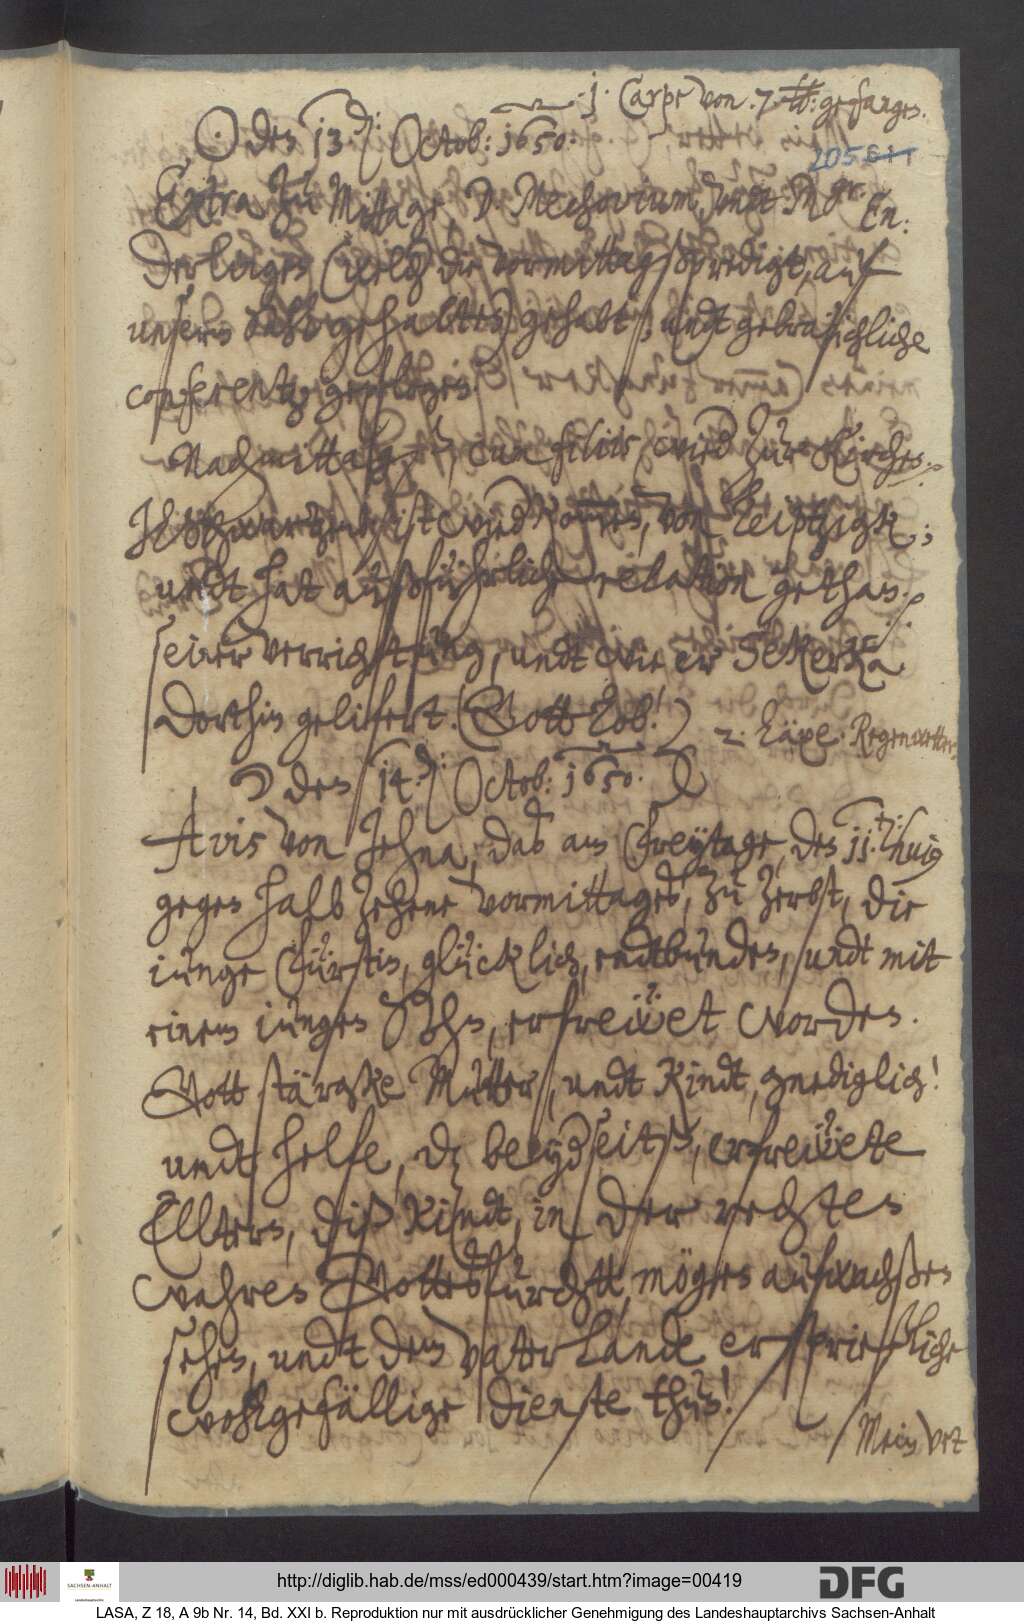 1. Carpe von .7. ℔: gefangen.
☉ den 13.den: Octob: 1650.
205
Extra zu Mittage D. Mechovium, undt Magr. En:
derlingen (welch die vormittagßpredigt, auf
unserm Sahl gehalten) gehabt, undt gebraüchliche
conferentz gepflogen.
Nachmittagß, cum filiis wied zur Kirchen.
Schwartzenb. ist wied kommen, von Leiptzigk;
undt hat außführliche relation gethan.
seiner verrichtung, undt wie er Sekerka
dorthin gelifert. (Gott lob!)
2. häxe. Regenwetter.
☽ den 14.den: Octob: 1650.
Avis von Jehna, daß am Freytage, den 11.ten: huius
gegen halb zehene vormittages, zu Zerbst, die
iunge Fürstin, glücklich, endtbunden, undt mit
einem iungen Sohn, erfrewet worden.
Gott stärgke Mutter, undt Kindt, gnediglich!
undt helfe, dz beyderseitß, erfrewete
Elltern, diß Kindt, in der rechten
wahren Gottesfurchtt, mögen aufwachßen
sehen, undt dem Vaterlande ersprießliche
wohlgefällige dienste thun!
Mein Vet
http://diglib.hab.de/mss/ed000439/start.htm?image=00419
SACHSEN-ANHALT
DFG
LASA, Z 18, A 9b Nr. 14, Bd. XXI b. Reproduktion nur mit ausdrücklicher Genehmigung des Landeshauptarchivs Sachsen-Anhalt